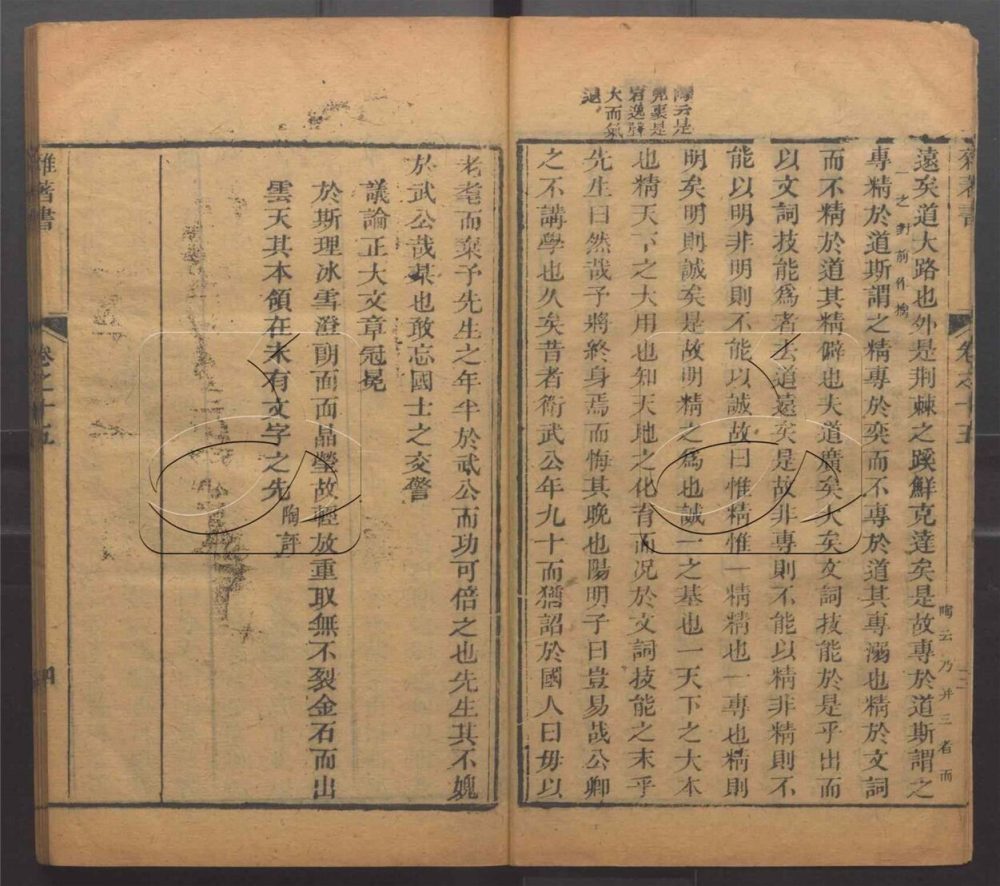 雜著書
卷之十五
三
遠矣道大路也外是荆棘之蹊鮮克達矣是故專於道斯謂之
陶云乃并三者而
一之封前作橋
專精於道斯謂之精專於奕而不專於道其專溺也精於文詞
而不精於道其精僻也夫道廣矣大矣文詞技能於是乎出而
以文詞技能爲者去道遠矣是故非專則不能以精非精則不
能以明非明則不能以誠故曰惟精惟一精精也一專也精則
明矣明則誠矣是故明精之爲也誠一之基也一天下之大本
也精天下之大用也知天地之化育而况於文詞技能之末乎
先生曰然哉予將終身焉而悔其晚也陽明子曰豈易哉公卿
之不講學也久矣昔者衛武公年九十而猶詔於國人曰毋以
陶云是
兜裏是
宕逸辭
大而氣
退
老耄而棄予先生之年半於武公而功可倍之也先生其不媿
於武公哉某也敢忘國士之交警
議論正大文章冠冕
於斯理冰雪澄朗面面晶瑩故輕放重取無不裂金石而出
雲天其本領在未有文字之先 陶評
雜著書
卷之十五
四